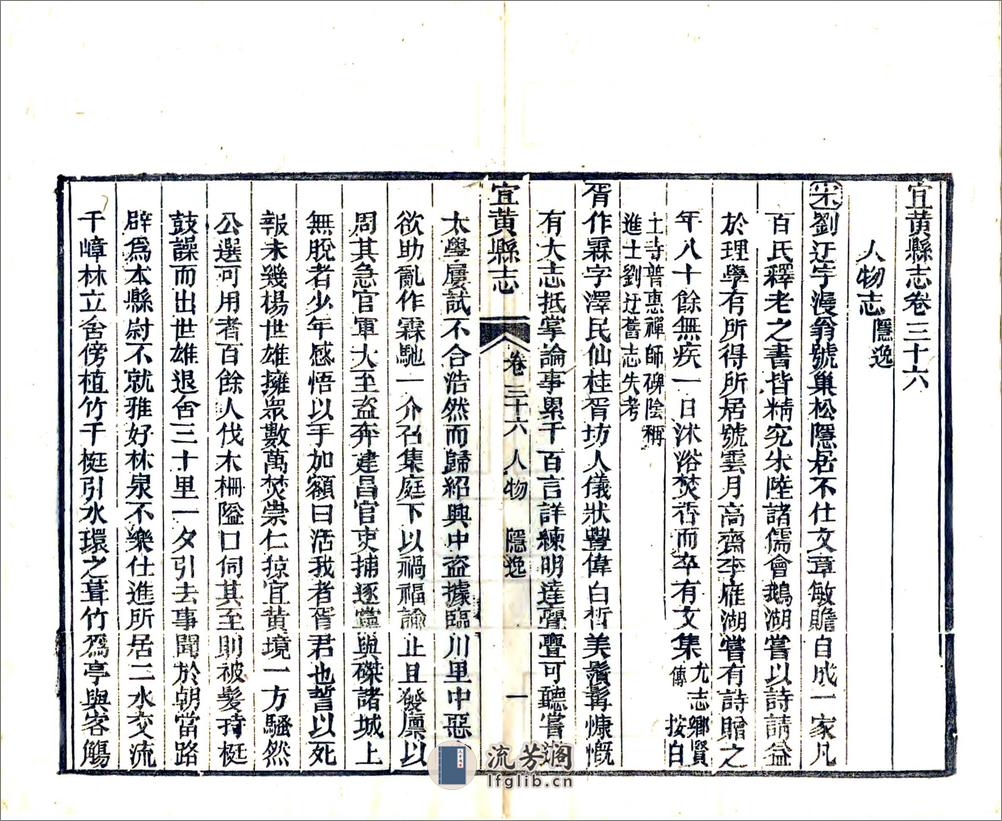 宜黃縣志卷三十六
人物志 隱逸
宋劉迂字漫翁號巢松隱居不仕文章敏贍自成一家凡
百氏釋老之書皆精究朱陸諸儒會鵝湖嘗以詩請益
於理學有所得所居號雲月高齋李雁湖嘗有詩贈之
年八十餘無疾一日沐浴焚香而卒有文集 尤志鄉賢傳 按白
土寺普惠禪師碑陰稱
進士劉迂舊志失考
胥作霖字澤民仙桂胥坊人儀狀豐偉白皙美鬚髯慷慨
有大志抵掌論事累千百言詳練明達亹亹可聽嘗
宜黃縣志 卷三十六 人物 隱逸 一
太學屢試不合浩然而歸紹興中盜據臨川里中惡
欲助亂作霖馳一介召集庭下以禍福諭止且發廩以
周其急官軍大至盜奔建昌官吏捕逐黨與磔諸城上
無脫者少年感悟以手加額曰活我者胥君也誓以死
報未幾楊世雄擁衆數萬焚崇仁掠宜黃境一方騷然
公選可用者百餘人伐木柵隘口伺其至則被髮持梃
鼓譟而出世雄退舍三十里一夕引去事聞於朝當路
辟爲本縣尉不就雅好林泉不樂仕進所居二水交流
千嶂林立舍傍植竹千梃引水環之葺竹爲亭與客觴
流芳閣
lfglib.cn